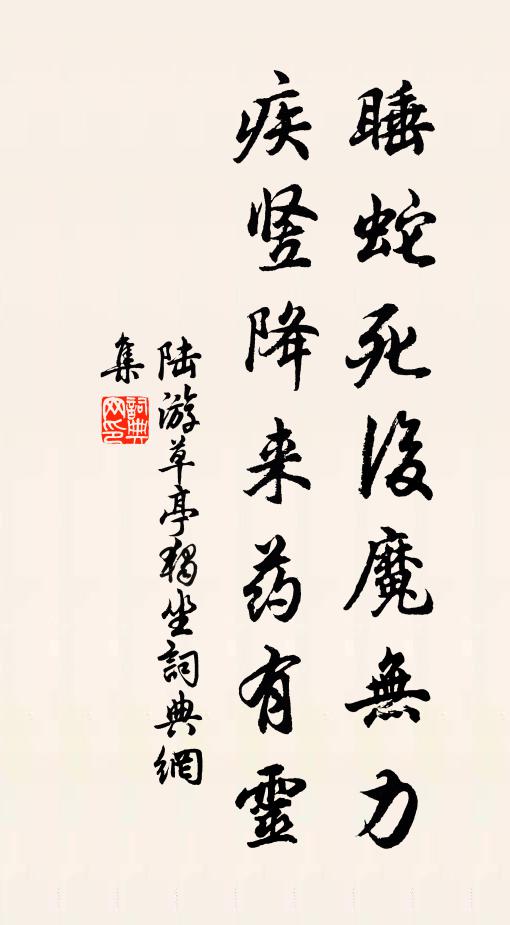 睡蛇死後魔無力
疾竖降来药有靈
陆游草亭獨坐詞典網
集
詞典
网印